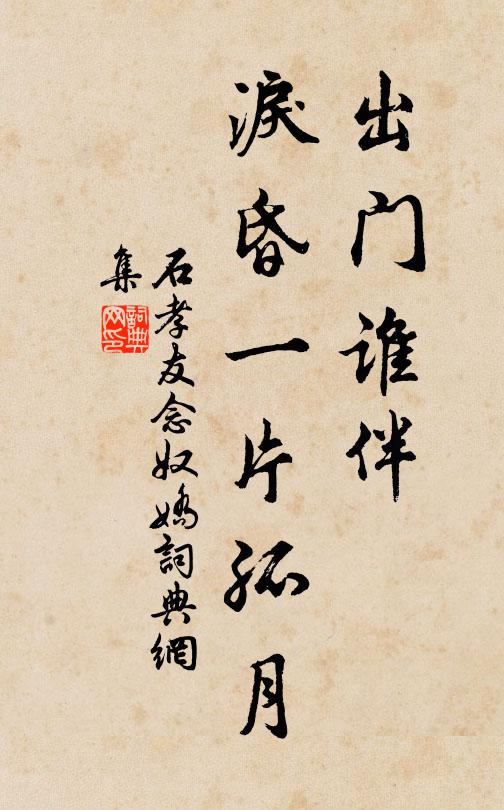 出门谁伴
淚昏一片孤月
石孝友念奴娇詞典網
集
詞典网印